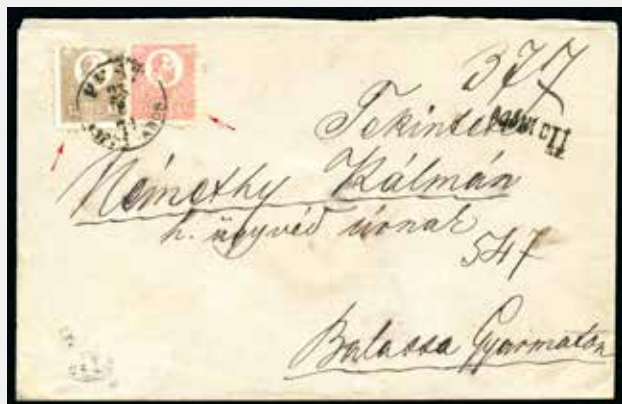 377
Tekintetes
Némethy Kálmán
h. ügyvéd úrnak
547
Balassa Gyarmaton
PEST